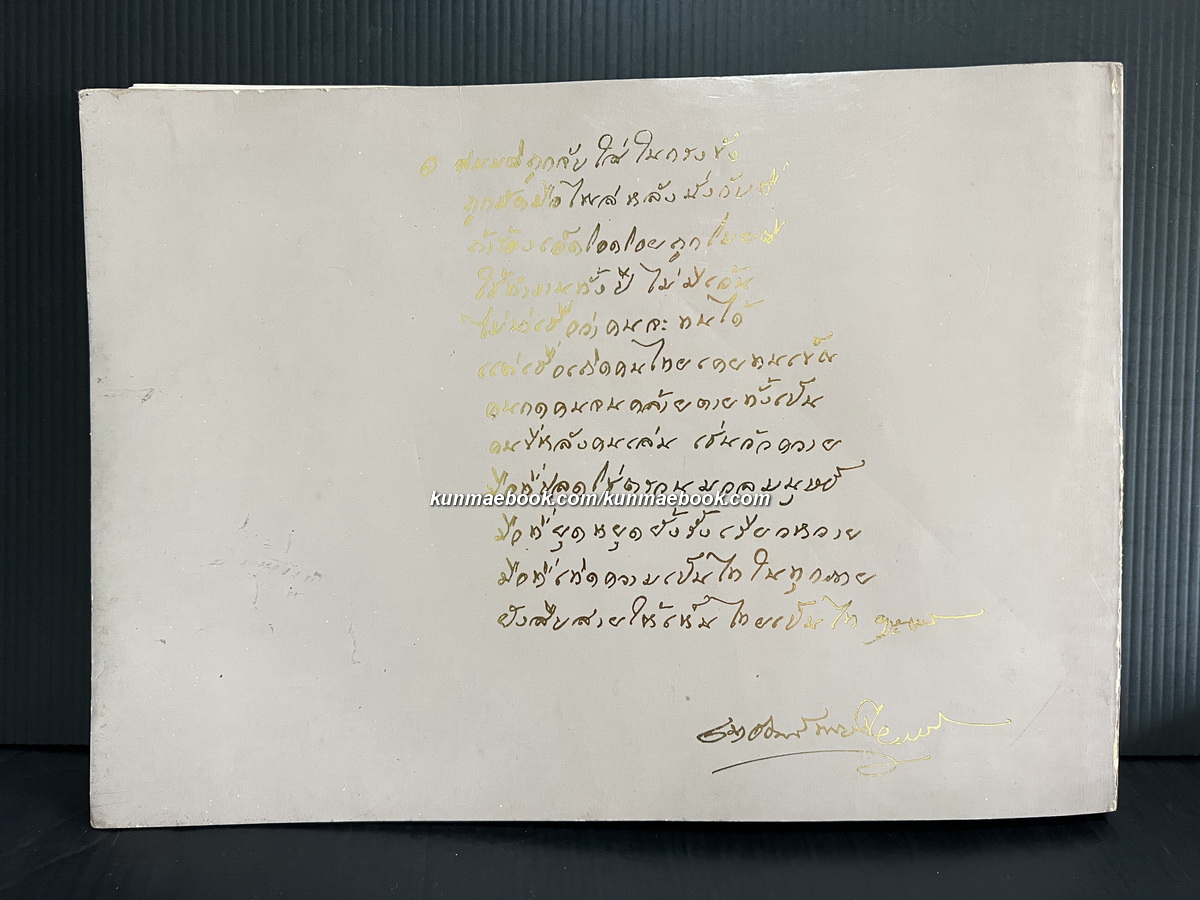 ๏ ถูกจับใส่ในกรงขัง
ถูกมัดมือไพล่หลังนั่งกับที่
ถ้าร้องเอ็ดโอดโอยถูกโบยตี
ใช้ทำงานทั้งปีไม่มีเว้น
ไม่น่าเชื่อว่าคนจะทนได้
แต่เชื่อเถิดคนไทยเคยทนเข็ญ
คนกดคนจนคล้ายตายทั้งเป็น
คนขี่หลังคนเล่น เช่นวัวควาย
kunmaebook.com/kunmaebook.com
มือที่ปลดโซ่ตรวนมวลมนุษย์
มือที่ยุดหยุดยั้งรั้งเรียวหวาย
มือที่เทิดความเป็นไทในทุกกาย
ยังสืบสายให้เห็นไทยเป็นไท